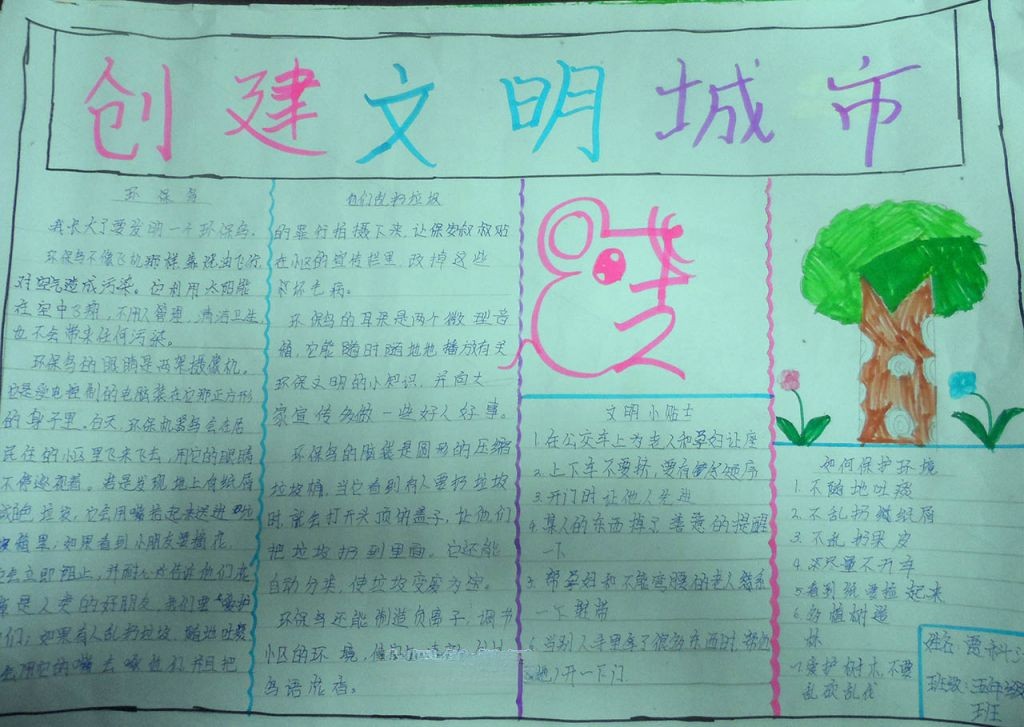 创建文明城市
环保鸟
我长大了要发明一个环保鸟。
环保鸟不像飞机那样靠烧油飞行,
对空气造成污染。它利用太阳能
在空中飞翔,不用人管理,清洁卫生,
也不会带来任何污染。
环保鸟的眼睛是两架摄像机。
它是受电控制的电脑装在它那正方形
的身子里。白天,环保机器鸟会在居
民住的小区里飞来飞去,用它的眼睛
不停巡视着。若是发现地上有纸屑
垃圾,它会用嘴捡起来送进垃
圾箱里,如果看到小朋友要摘花,
会立即阻止,并耐心地告诉他们花
草是人类的好朋友,我们要爱护
们;如果有人乱扔垃圾、随地吐痰
会用它的嘴去啄他们并且把
他们乱扔垃圾
的罪行拍摄下来,让保安叔叔贴
在小区的宣传栏里,改掉这些
坏毛病。
环保鸟的耳朵是两个微型音
箱,它能随时随地地播放有关
环保文明的小知识,并向大
家宣传多做一些好人好事。
环保鸟的脑袋是圆形的压缩
垃圾桶,当它看到有人要扔垃圾
时,就会打开头顶的盖子,让他们
把垃圾扔到里面。它还能
自动分类,使垃圾变废为宝。
环保鸟还能制造负离子,调节
小区的环境,
鸟语花香。
文明小贴士
1.在公交车上为老人和孕妇让座
2.上下车不要挤,要有秩序
3.开门时让他人先进
4.某人的东西掉了善意的提醒
一下
5.帮孕妇和不能弯腰的老人系
一下鞋带
6.当别人手里拿了很多东西时,帮他
(她)开一下门
如何保护环境
1.不随地吐痰
2.不乱扔纸屑
3.不乱扔果皮
4.尽量不开车
5.看到纸要捡起来
6.多植树造
林
7.爱护树木,不要
乱砍乱伐
姓名:
班级:五年级
班